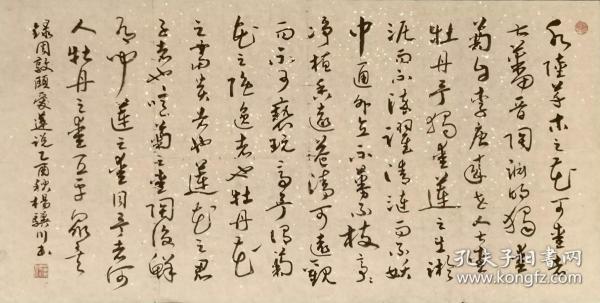 水陸草木之花可愛者
甚蕃晉陶淵明獨愛
菊自李唐來世人甚愛
牡丹予獨愛蓮之出淤
泥而不染濯清漣而不妖
中通外直不蔓不枝亭亭
淨植香遠益清可遠觀
而不可褻玩焉予謂菊
花之隱逸者也牡丹花
之富貴者也蓮花之君
子者也噫菊之愛陶後鮮
有聞蓮之愛同予者何
人牡丹之愛宜乎眾矣
錄周敦頤愛蓮說乙酉秋楊驥川書
孔夫子旧书网